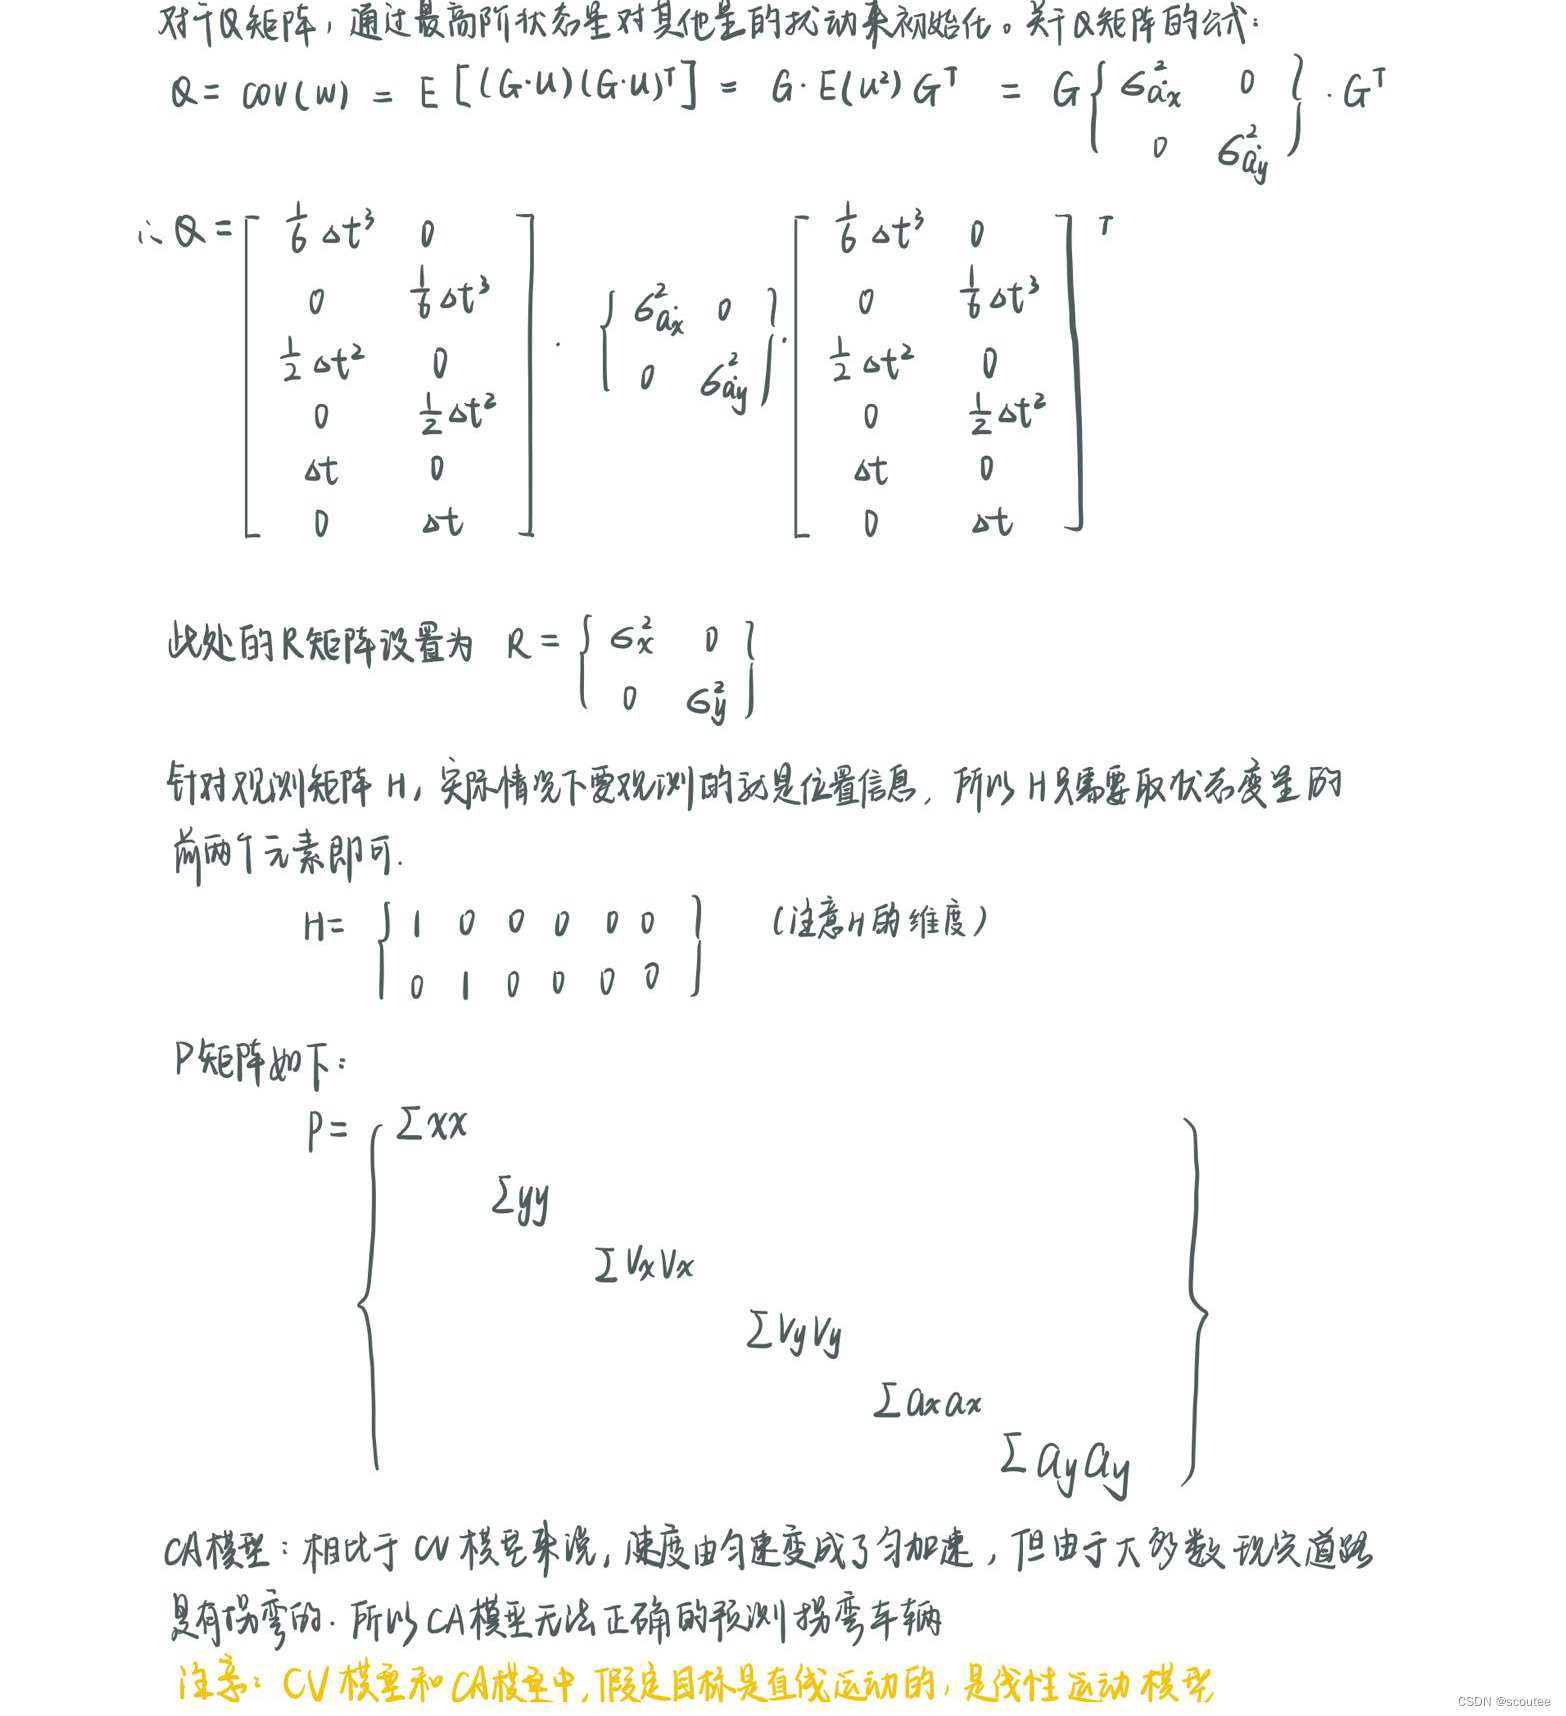 对于Q矩阵，通过最高阶状态量对其他量的扰动来初始化。关于Q矩阵的公式：
Q = cov(w) = E[(G·u)(G·u)ᵀ] = G·E(u²)Gᵀ = G{σ²ȧx 0 0 σ²ȧy}·Gᵀ
∴ Q = [1/6 Δt³ 0
0 1/6 Δt³
1/2 Δt² 0
0 1/2 Δt²
Δt 0
0 Δt]
· {σ²ȧx 0
0 σ²ȧy} ·
[1/6 Δt³ 0
0 1/6 Δt³
1/2 Δt² 0
0 1/2 Δt²
Δt 0
0 Δt]ᵀ
此处的R矩阵设置为 R = {σ²x 0
0 σ²y}
针对观测矩阵 H，实际情况下要观测的就是位置信息，所以 H只需要取状态变量的
前两个元素即可.
H= {1 0 0 0 0 0 (注意H的维度)
0 1 0 0 0 0}
P矩阵如下：
P = {Σxx
Σyy
ΣVxVx
ΣVyVy
Σaxax
Σayay}
CA模型：相比于 CV 模型来说，速度由匀速变成了匀加速，但由于大多数现实道路
是有拐弯的. 所以 CA模型无法正确的预测拐弯车辆
注意：CV模型和CA模型中,假定目标是直线运动的，是线性运动模型
CSDN @scoutee